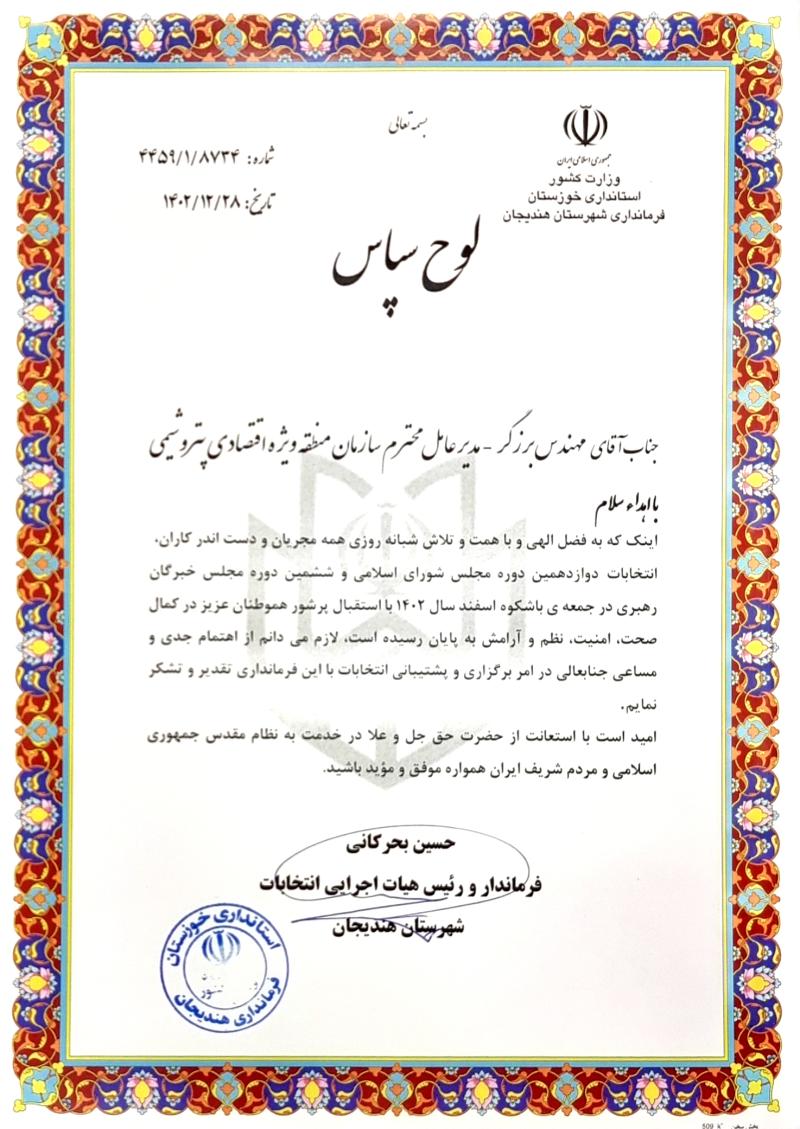 بسمه تعالی
جمهوری اسلامی ایران
وزارت کشور
استانداری خوزستان
فرمانداری شهرستان هندیجان
شماره: ۴۴۵۹/۱/۸۷۳۴
تاریخ: ۱۴۰۲/۱۲/۲۸
لوح سپاس
جناب آقای مهندس برزگر - مدیرعامل محترم سازمان منطقه ویژه اقتصادی پتروشیمی
با اهداء سلام
اینک که به فضل الهی و با همت و تلاش شبانه روزی همه مجریان و دست اندر کاران.
انتخابات دوازدهمین دوره مجلس شورای اسلامی و ششمین دوره مجلس خبرگان
رهبری در جمعه ی باشکوه اسفند سال ۱۴۰۲ با استقبال پرشور هموطنان عزیز در کمال
صحت، امنیت، نظم و آرامش به پایان رسیده است، لازم می دانم از اهتمام جدی و
مساعی جنابعالی در امر برگزاری و پشتیبانی انتخابات با این فرمانداری تقدیر و تشکر
نمایم.
امید است با استعانت از حضرت حق جل و علا در خدمت به نظام مقدس جمهوری
اسلامی و مردم شریف ایران همواره موفق و مؤید باشید.
حسین بحرکانی
فرماندار و رئیس هیات اجرایی انتخابات
شهرستان هندیجان
استانداری خوزستان
فرمانداری هندیجان